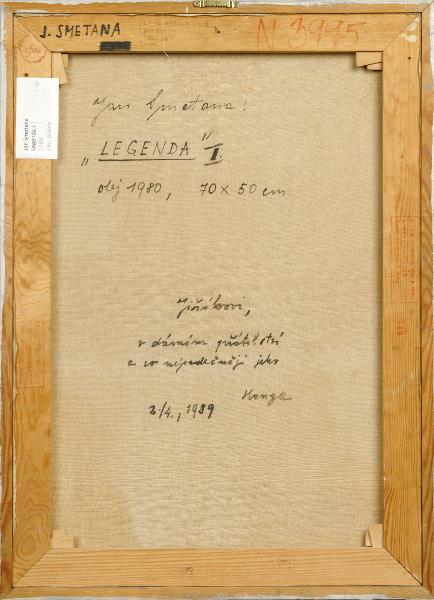 J. SMETANA
N 3995
Jan Smetana
Legenda I.
1980
olej, plátno
Jan Smetana:
„LEGENDA" I.
olej 1980, 70 x 50 cm
v dávném přátelství
a co nejsrdečněji jeho
Honza
2/4., 1989